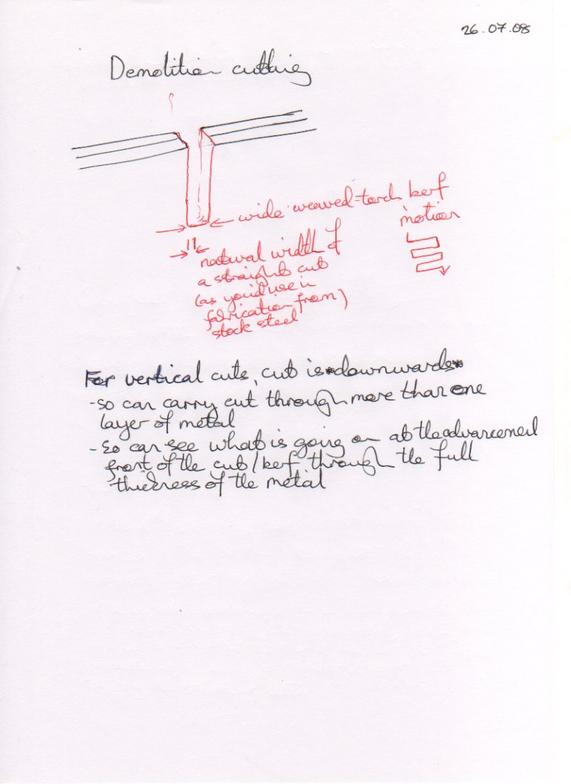 26.07.08
Demolition cutting
wide weaved-torch kerf
motion
natural width of
a straight cut
(as you'd use in
fabrication from)
stock steel
For vertical cuts, cut is downwards
-so can carry cut through more than one
layer of metal
-so can see what is going on at the advancement
front of the cut/kerf through the full
thickness of the metal